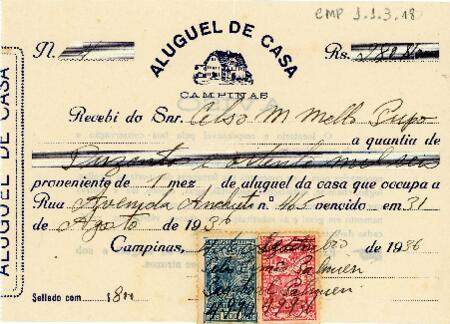 CMP 1.1.3.18
ALUGUEL DE CASA
N. 1 Rs. 280$000
CAMPINAS
Recebi do Snr. Celso M Mello Pupo
a quantia de
Duzentos e oitenta mil reis
proveniente de 1 mez de aluguel da casa que occupa a
Rua Avenida Anchieta n.º 465 vencido em 31
de Agosto de 1936
Campinas, de Setembro de 1936
Sellado com $800
ALUGUEL DE CASA